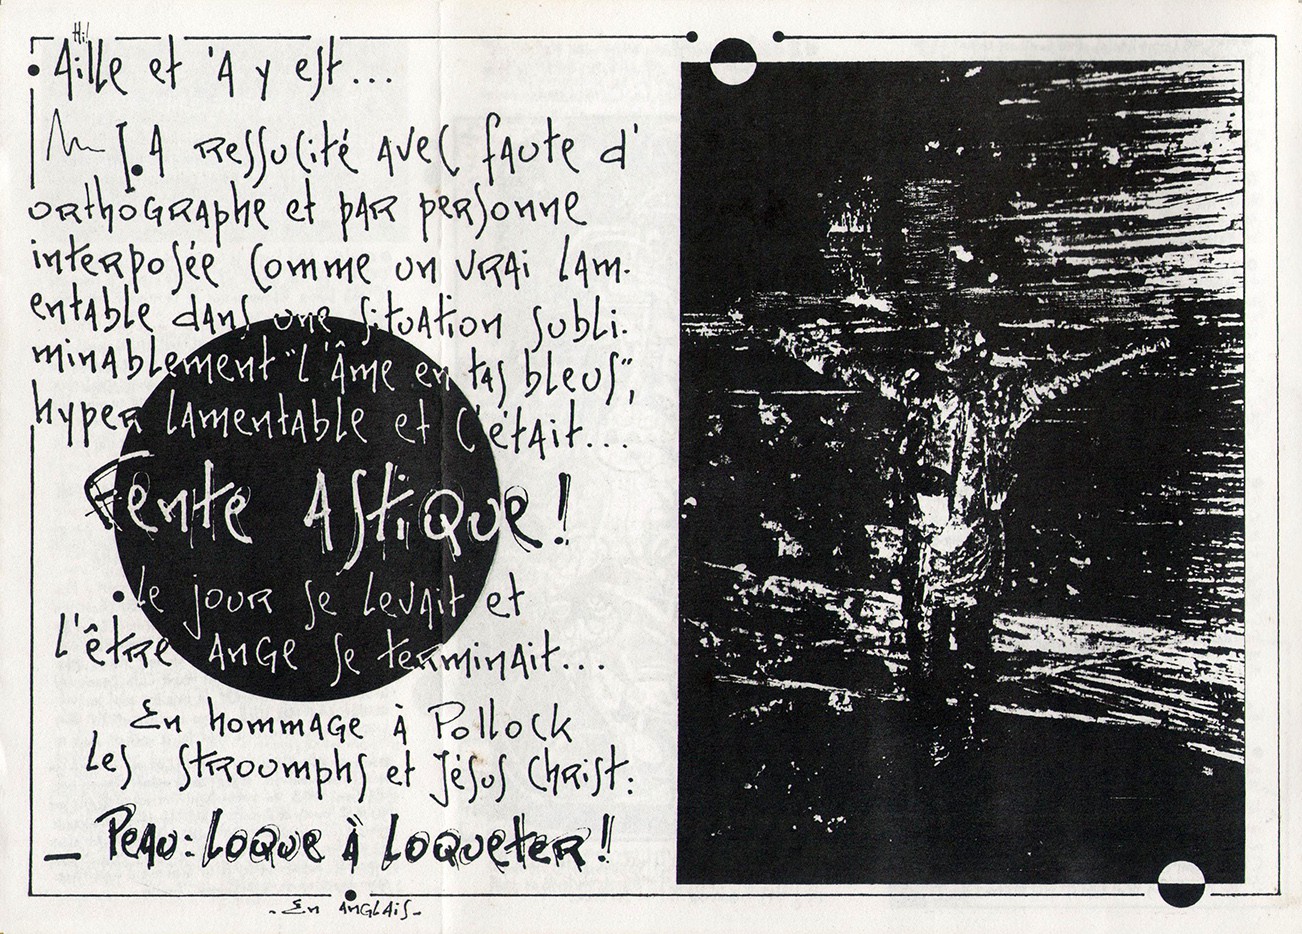 Hi!
Aille et 'A y est...
J.A ressucité avec faute d'
orthographe et par personne
interposée comme un vrai lam-
entable dans une situation subli-
minablement "l'Âme en tas bleus",
hyper lamentable et c'était...
Fente Astique!
Le jour se levait et
l'être ange se terminait...
En hommage à Pollock
Les Stroumphs et Jésus Christ:
_ Peau: Loque à Loqueter!
- En anglais -